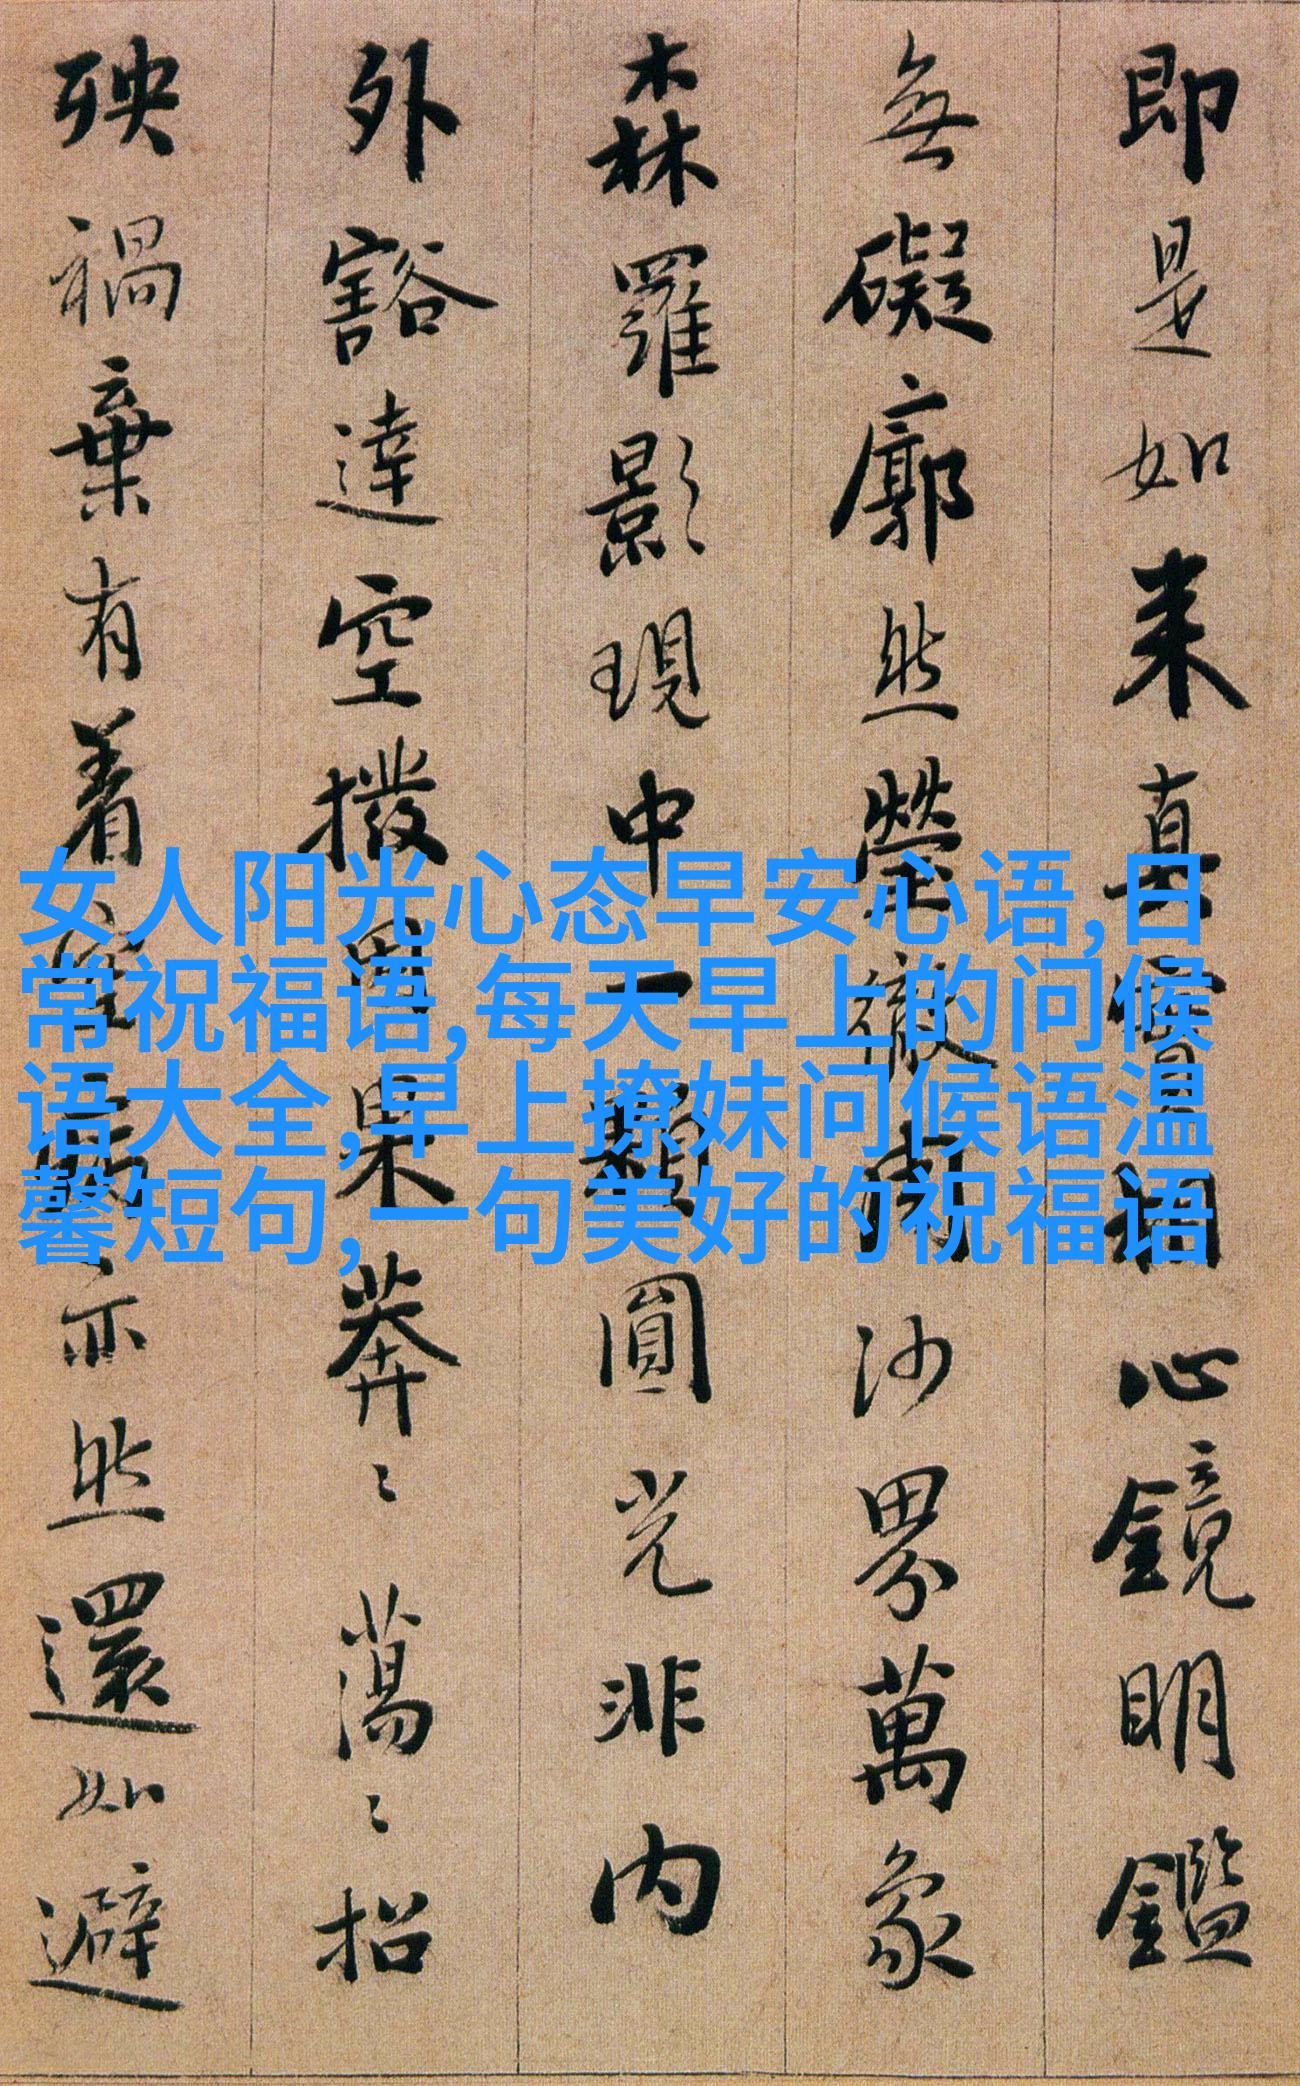 即是如来真實相心鏡明鑑
無礙廓然瑩徹周沙界萬象
森羅影現中一顆圓光非内
外豁達空撥因果莽〻蕩〻招
殃禍棄有着空病亦然還如避
女人阳光心态早安心语,日
常祝福语,每天早上的问候
语大全,早上撩妹问候语温
馨短句,一句美好的祝福语